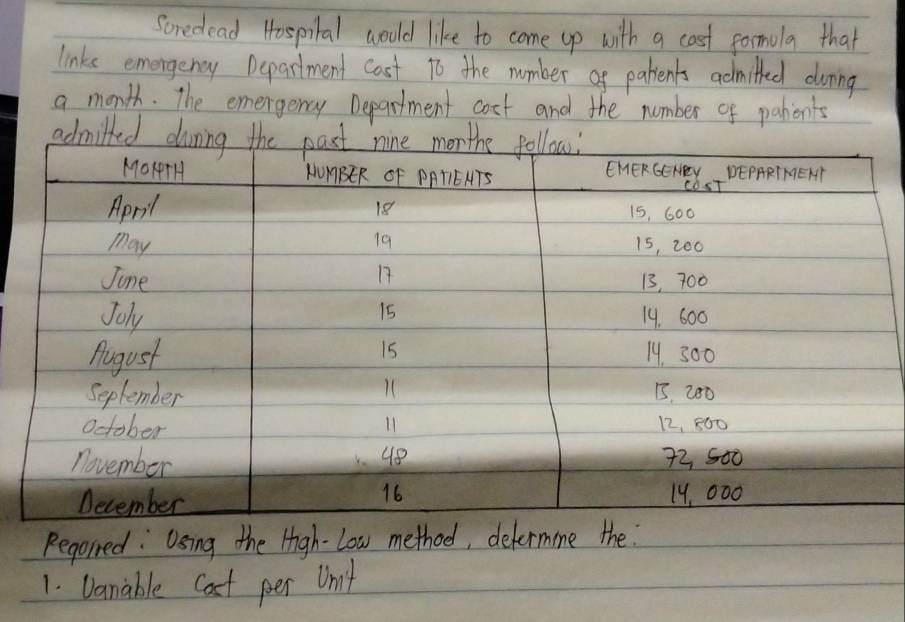 Soredead Hospital would like to come up with a cost formula that
links emergency Department Cost To the number of patients admitted during
a month. The emergency Department cost and the number of patients
admitted during the past nine months follow:
MONTH NUMBER OF PATIENTS EMERGENCY DEPARTMENT COST
April 18 15, 600
May 19 15, 200
June 17 13, 700
July 15 14, 600
August 15 14, 300
September 11 13, 200
October 11 12, 800
November 48 72, 500
December 16 14, 000
Required: Using the High-Low method, determine the:
1. Variable Cost per Unit